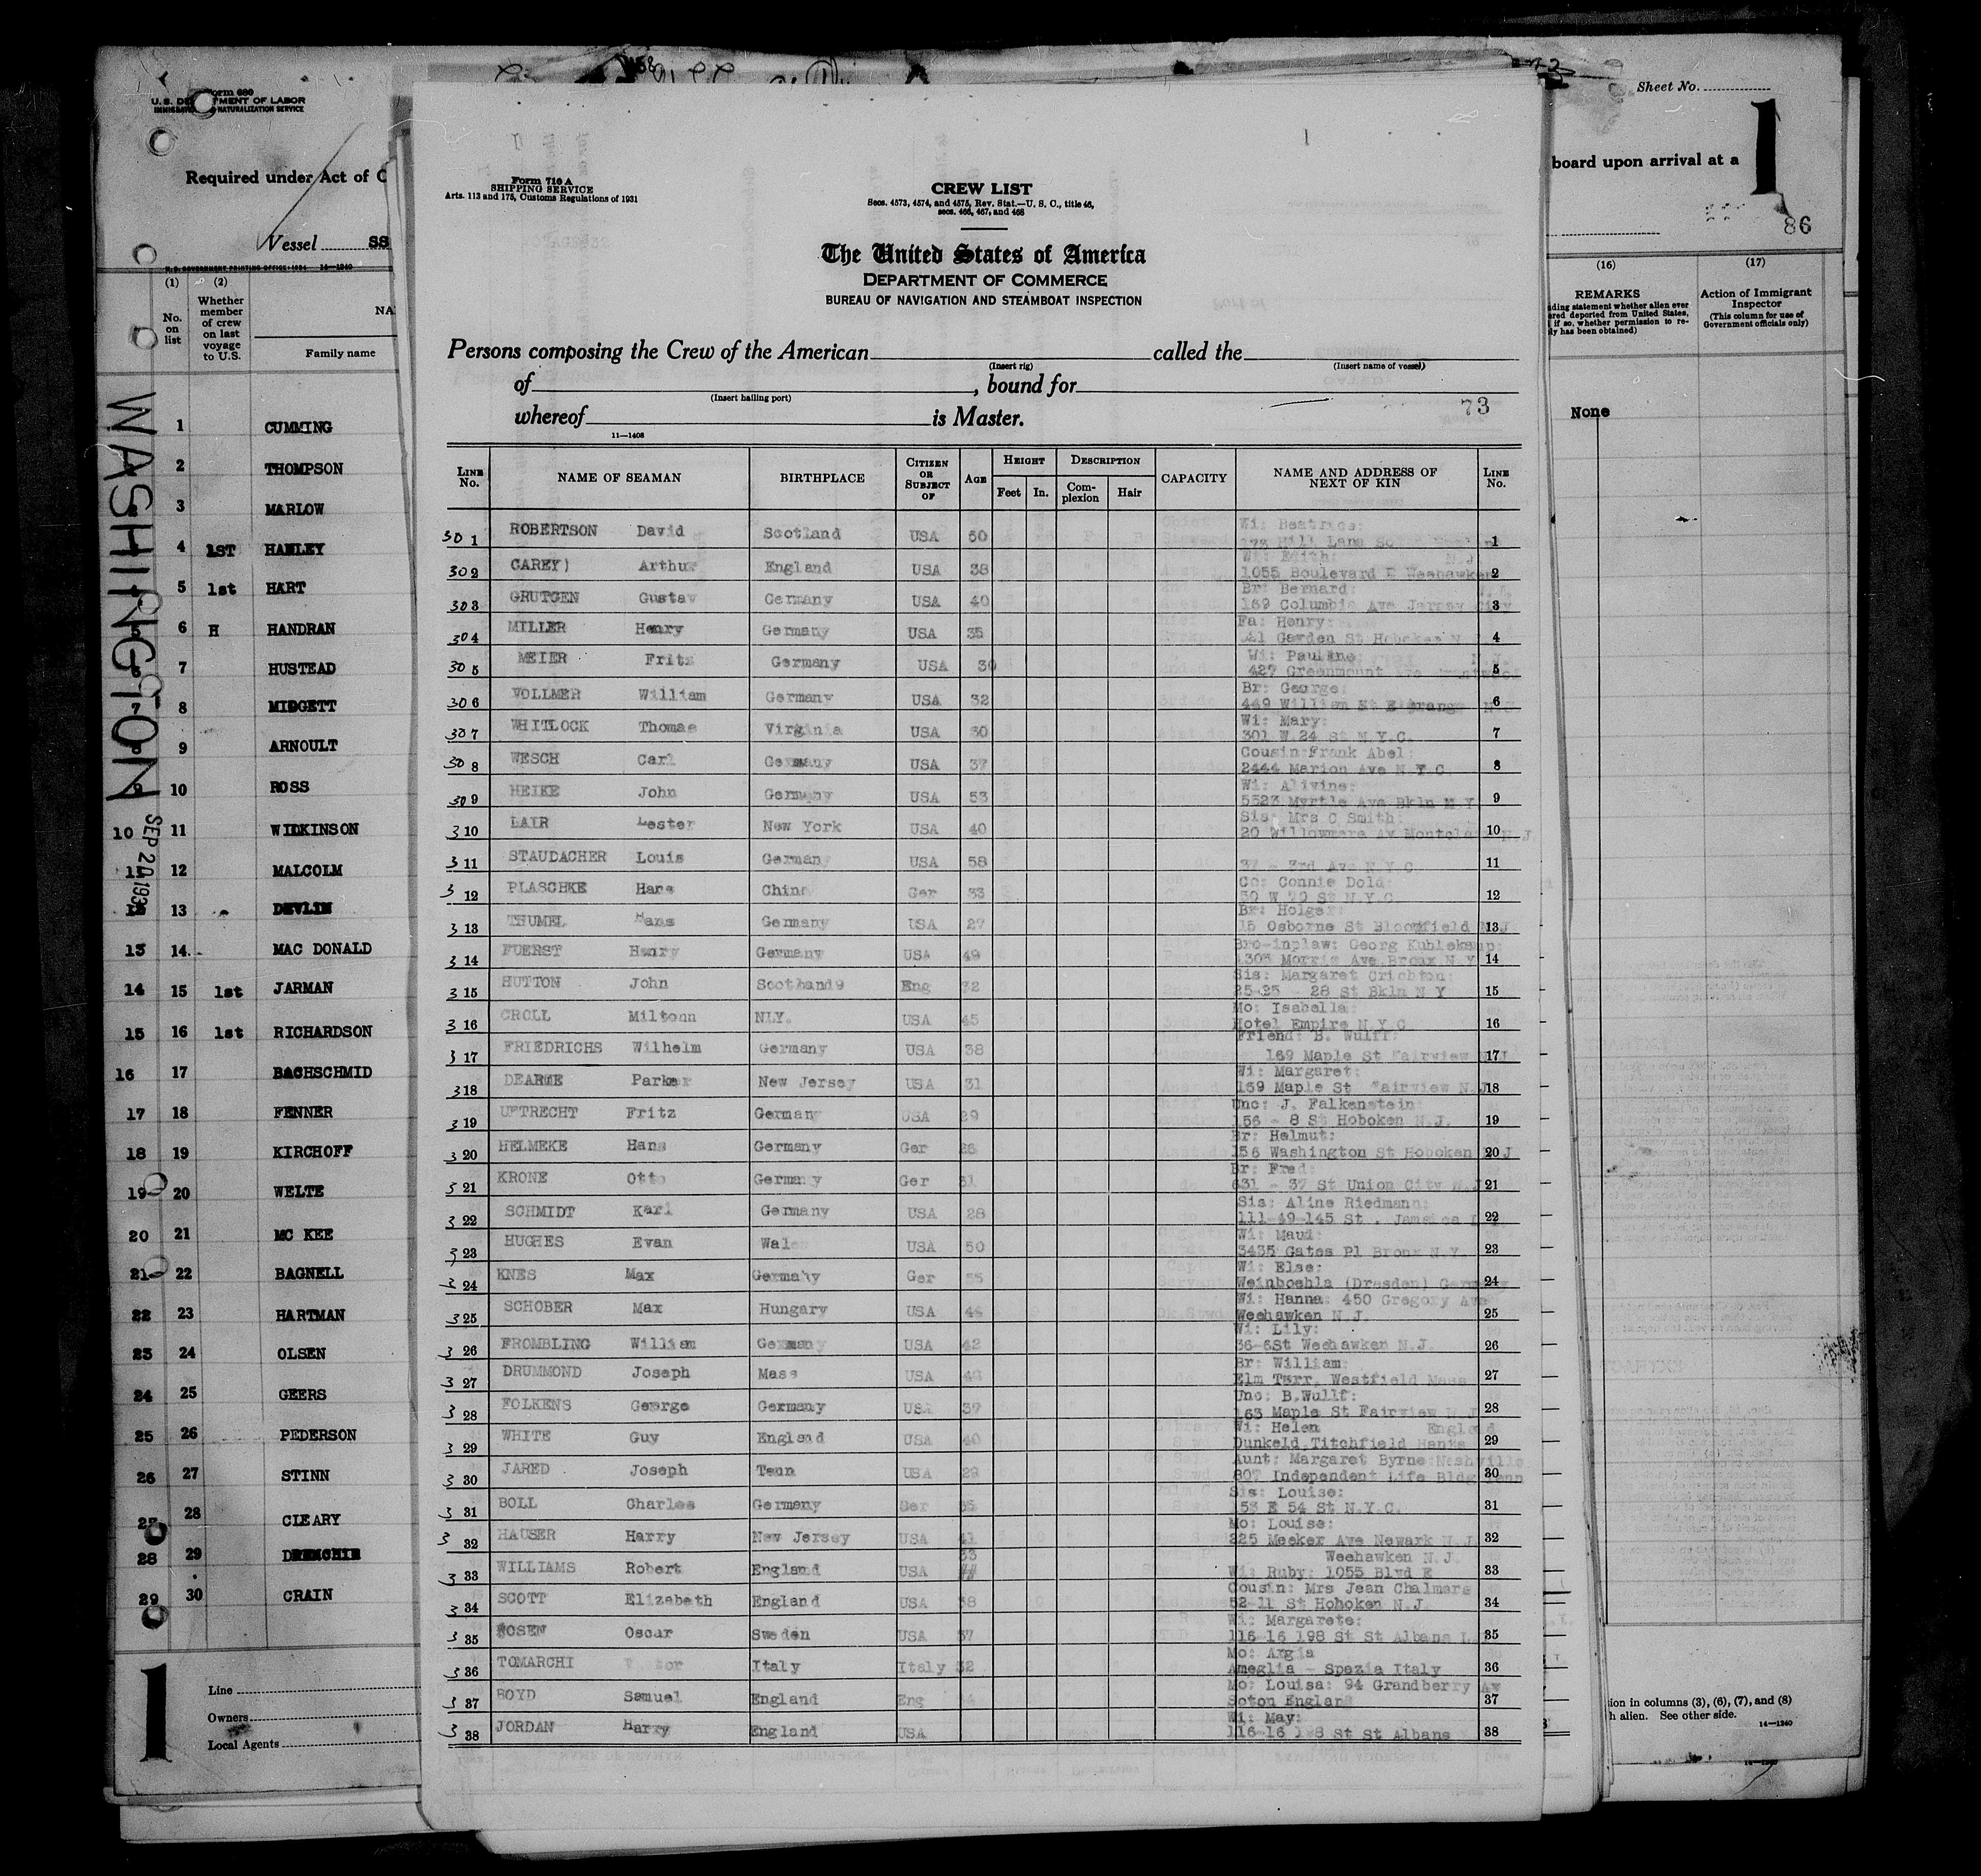 Form 680
U. S. DEPARTMENT OF LABOR
IMMIGRATION NATURALIZATION SERVICE
Required under Act of C
Vessel SS
U. S. GOVERNMENT PRINTING OFFICE: 1934 14—1240
(1) (2)
No. on list
Whether member of crew on last voyage to U.S.
NA
Family name
WASHINGTON
SEP 20 193
1 CUMMING
2 THOMPSON
3 MARLOW
4 1ST HANLEY
5 1st HART
6 H HANDRAN
7 HUSTEAD
8 MIDGETT
9 ARNOULT
10 ROSS
10 11 WILKINSON
12 MALCOLM
13 DEVLIN
13 14 MAC DONALD
14 15 1st JARMAN
15 16 1st RICHARDSON
16 17 BACHSCHMID
17 18 FENNER
18 19 KIRCHOFF
19 20 WELTE
20 21 MC KEE
21 22 BAGNELL
22 23 HARTMAN
23 24 OLSEN
24 25 GEERS
25 26 PEDERSON
26 27 STINN
27 28 CLEARY
28 29
29 30 CRAIN
1
Line
Owners
Local Agents
Form 710 A
SHIPPING SERVICE
Arts. 113 and 175, Customs Regulations of 1931
CREW LIST
Secs. 4573, 4574, and 4575, Rev. Stat.—U. S. C., title 46,
secs. 466, 467, and 468
The United States of America
DEPARTMENT OF COMMERCE
BUREAU OF NAVIGATION AND STEAMBOAT INSPECTION
Persons composing the Crew of the American called the
(Insert rig) (Insert name of vessel)
of , bound for
(Insert hailing port)
73
whereof is Master.
11—1408
LINE No. NAME OF SEAMAN BIRTHPLACE CITIZEN OR SUBJECT OF AGE HEIGHT Feet In. DESCRIPTION Complexion Hair CAPACITY NAME AND ADDRESS OF NEXT OF KIN LINE No.
Wi: Beatrice:
301 ROBERTSON David Scotland USA 50 173 Hill Lane 1
Wi: Edith: N.J
302 CAREY) Arthur England USA 38 1055 Boulevard E Weehawken 2
Br: Bernard:
303 GRUTGEN Gustav Germany USA 40 169 Columbia Ave Jersey City 3
Fa: Henry:
304 MILLER Henry Germany USA 35 Garden St Hoboken N 4
Wi: Pauline
305 MEIER Fritz Germany USA 30 427 Greenmount 5
Br: George:
306 VOLLMER William Germany USA 32 449 William St E Orange 6
Wi: Mary:
307 WHITLOCK Thomas Virginia USA 30 301 W.24 St N.Y.C. 7
Cousin:Frank Abel:
308 WESCH Carl Germany USA 37 2444 Marion Ave N.Y.C 8
Wi: Alivine:
309 HEIKE John Germany USA 53 5523 Myrtle Ave Bkln N Y 9
Sis: Mrs C Smith:
310 LAIR Lester New York USA 40 20 Willowmere Av Montclair N.J. 10
311 STAUDACHER Louis German USA 58 37 - 3rd Ave N.Y.C 11
Co: Connie Dold:
312 PLASCHKE Hans China Ger 33 30 W 70 St N.Y.C. 12
Br: Holger
313 THUMEL Hans Germany USA 27 15 Osborne St Bloomfield NJ 13
Bro-inplaw: Georg Kuhlekamp:
314 FUERST Henry Germany USA 49 1303 Morris Ave Bronx N Y 14
Sis: Margaret Crichton:
315 HUTTON John Scothand9 Eng 32 25-25 - 28 St Bkln N Y 15
Mo: Isabella:
316 CROLL Miltonn NLY. USA 45 Hotel Empire N.Y.C 16
Friend: B. Wulff:
317 FRIEDRICHS Wilhelm Germany USA 38 169 Maple St Fairview 17
Wi: Margaret:
318 Parker New Jersey USA 31 169 Maple St Fairview N.J 18
Unc: J. Falkenstein
319 UFTRECHT Fritz German USA 29 156 - 8 St Hoboken N.J. 19
Br: Helmut:
320 HELMEKE Hans Germany Ger 156 Washington St Hoboken J 20
Br: Fred:
321 KRONE Otto Germany Ger 31 631 - 37 St Union City N.J 21
Sis: Aline Riedmann:
322 SCHMIDT Karl Germany USA 28 111-49-145 St . Jamaica 22
Wi: Maud:
323 HUGHES Evan Wales USA 50 3435 Gates Pl Bronx N.Y. 23
Wi: Else:
324 KNES Max Germany Ger 35 Weinboehla (Dresden) Germany 24
Wi: Hanna: 450 Gregory Ave
325 SCHOBER Max Hungary USA 44 Dk.Stwd Weehawken N.J. 25
Wi: Lily:
326 FROMBLING William Germany USA 42 36-6St Weehawken N.J. 26
Br: William:
327 DRUMMOND Joseph Mass USA Elm Terr. Westfield Mass 27
Unc: B.Wullf:
328 FOLKENS George Germany USA 37 163 Maple St Fairview N J 28
Wi: Helen England
329 WHITE Guy England USA 40 Dunkeld Titchfield Hants 29
Aunt: Margaret Byrne:Nashville
330 JARED Joseph Tenn USA 29 807 Independent Life Bldg Tenn 30
Sis: Louise:
331 BOLL Charles Germany Ger 35 153 E 54 St N.Y.C. 31
Mo: Louise:
332 HAUSER Harry New Jersey USA 41 225 Meeker Ave Newark N.J. 32
33 Weehawken N.J.
333 WILLIAMS Robert England USA Wi: Ruby: 1055 Blvd E 33
Cousin: Mrs Jean Chalmers
334 SCOTT Elizabeth England USA 38 52-11 St Hoboken N.J. 34
Wi: Margarete:
335 ROSEN Oscar Sweden USA 37 116-16 198 St St Albans L 35
Mo: Argia
336 TOMARCHI Italy Italy 32 Ameglia - Spezia Italy 36
Mo: Louisa: 94 Grandberry Av
337 BOYD Samuel England Eng Soton England 37
Wi: May:
338 JORDAN Harry England USA 116-16 198 St St Albans 38
Sheet No.
board upon arrival at a
1
86
(16) (17)
REMARKS
ding statement whether alien ever
ered deported from United States,
if so, whether permission to re-
ly has been obtained)
Action of Immigrant
Inspector
(This column for use of
Government officials only)
None
ion in columns (3), (6), (7), and (8)
h alien. See other side.
14—1240